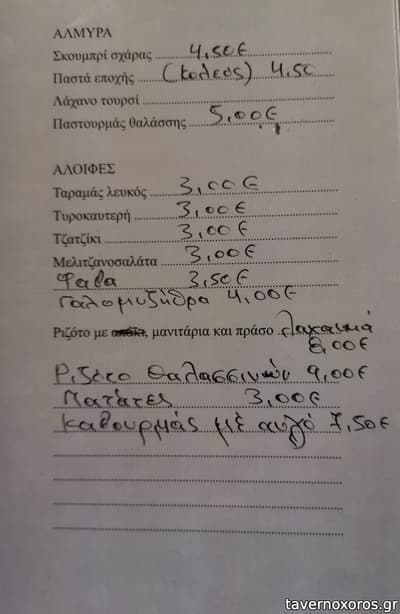 ΑΛΜΥΡΑ
Σκουμπρί σχάρας 4,50€
Παστά εποχής (κολεός) 4,50
Λάχανο τουρσί
Παστουρμάς θαλάσσης 5,00€
ΑΛΟΙΦΕΣ
Ταραμάς λευκός 3,00€
Τυροκαυτερή 3,00€
Τζατζίκι 3,00€
Μελιτζανοσαλάτα 3,00€
Φαβα 3,50€
Γαλομυζήθρα 4,00€
Ριζότο με μανιτάρια και πράσο λαχανικά
8,00€
Ριζότο θαλασσινών 9,00€
Πατάτες 3,00€
καβουρμάς με αυγό 7,50€
tavernoxoros.gr